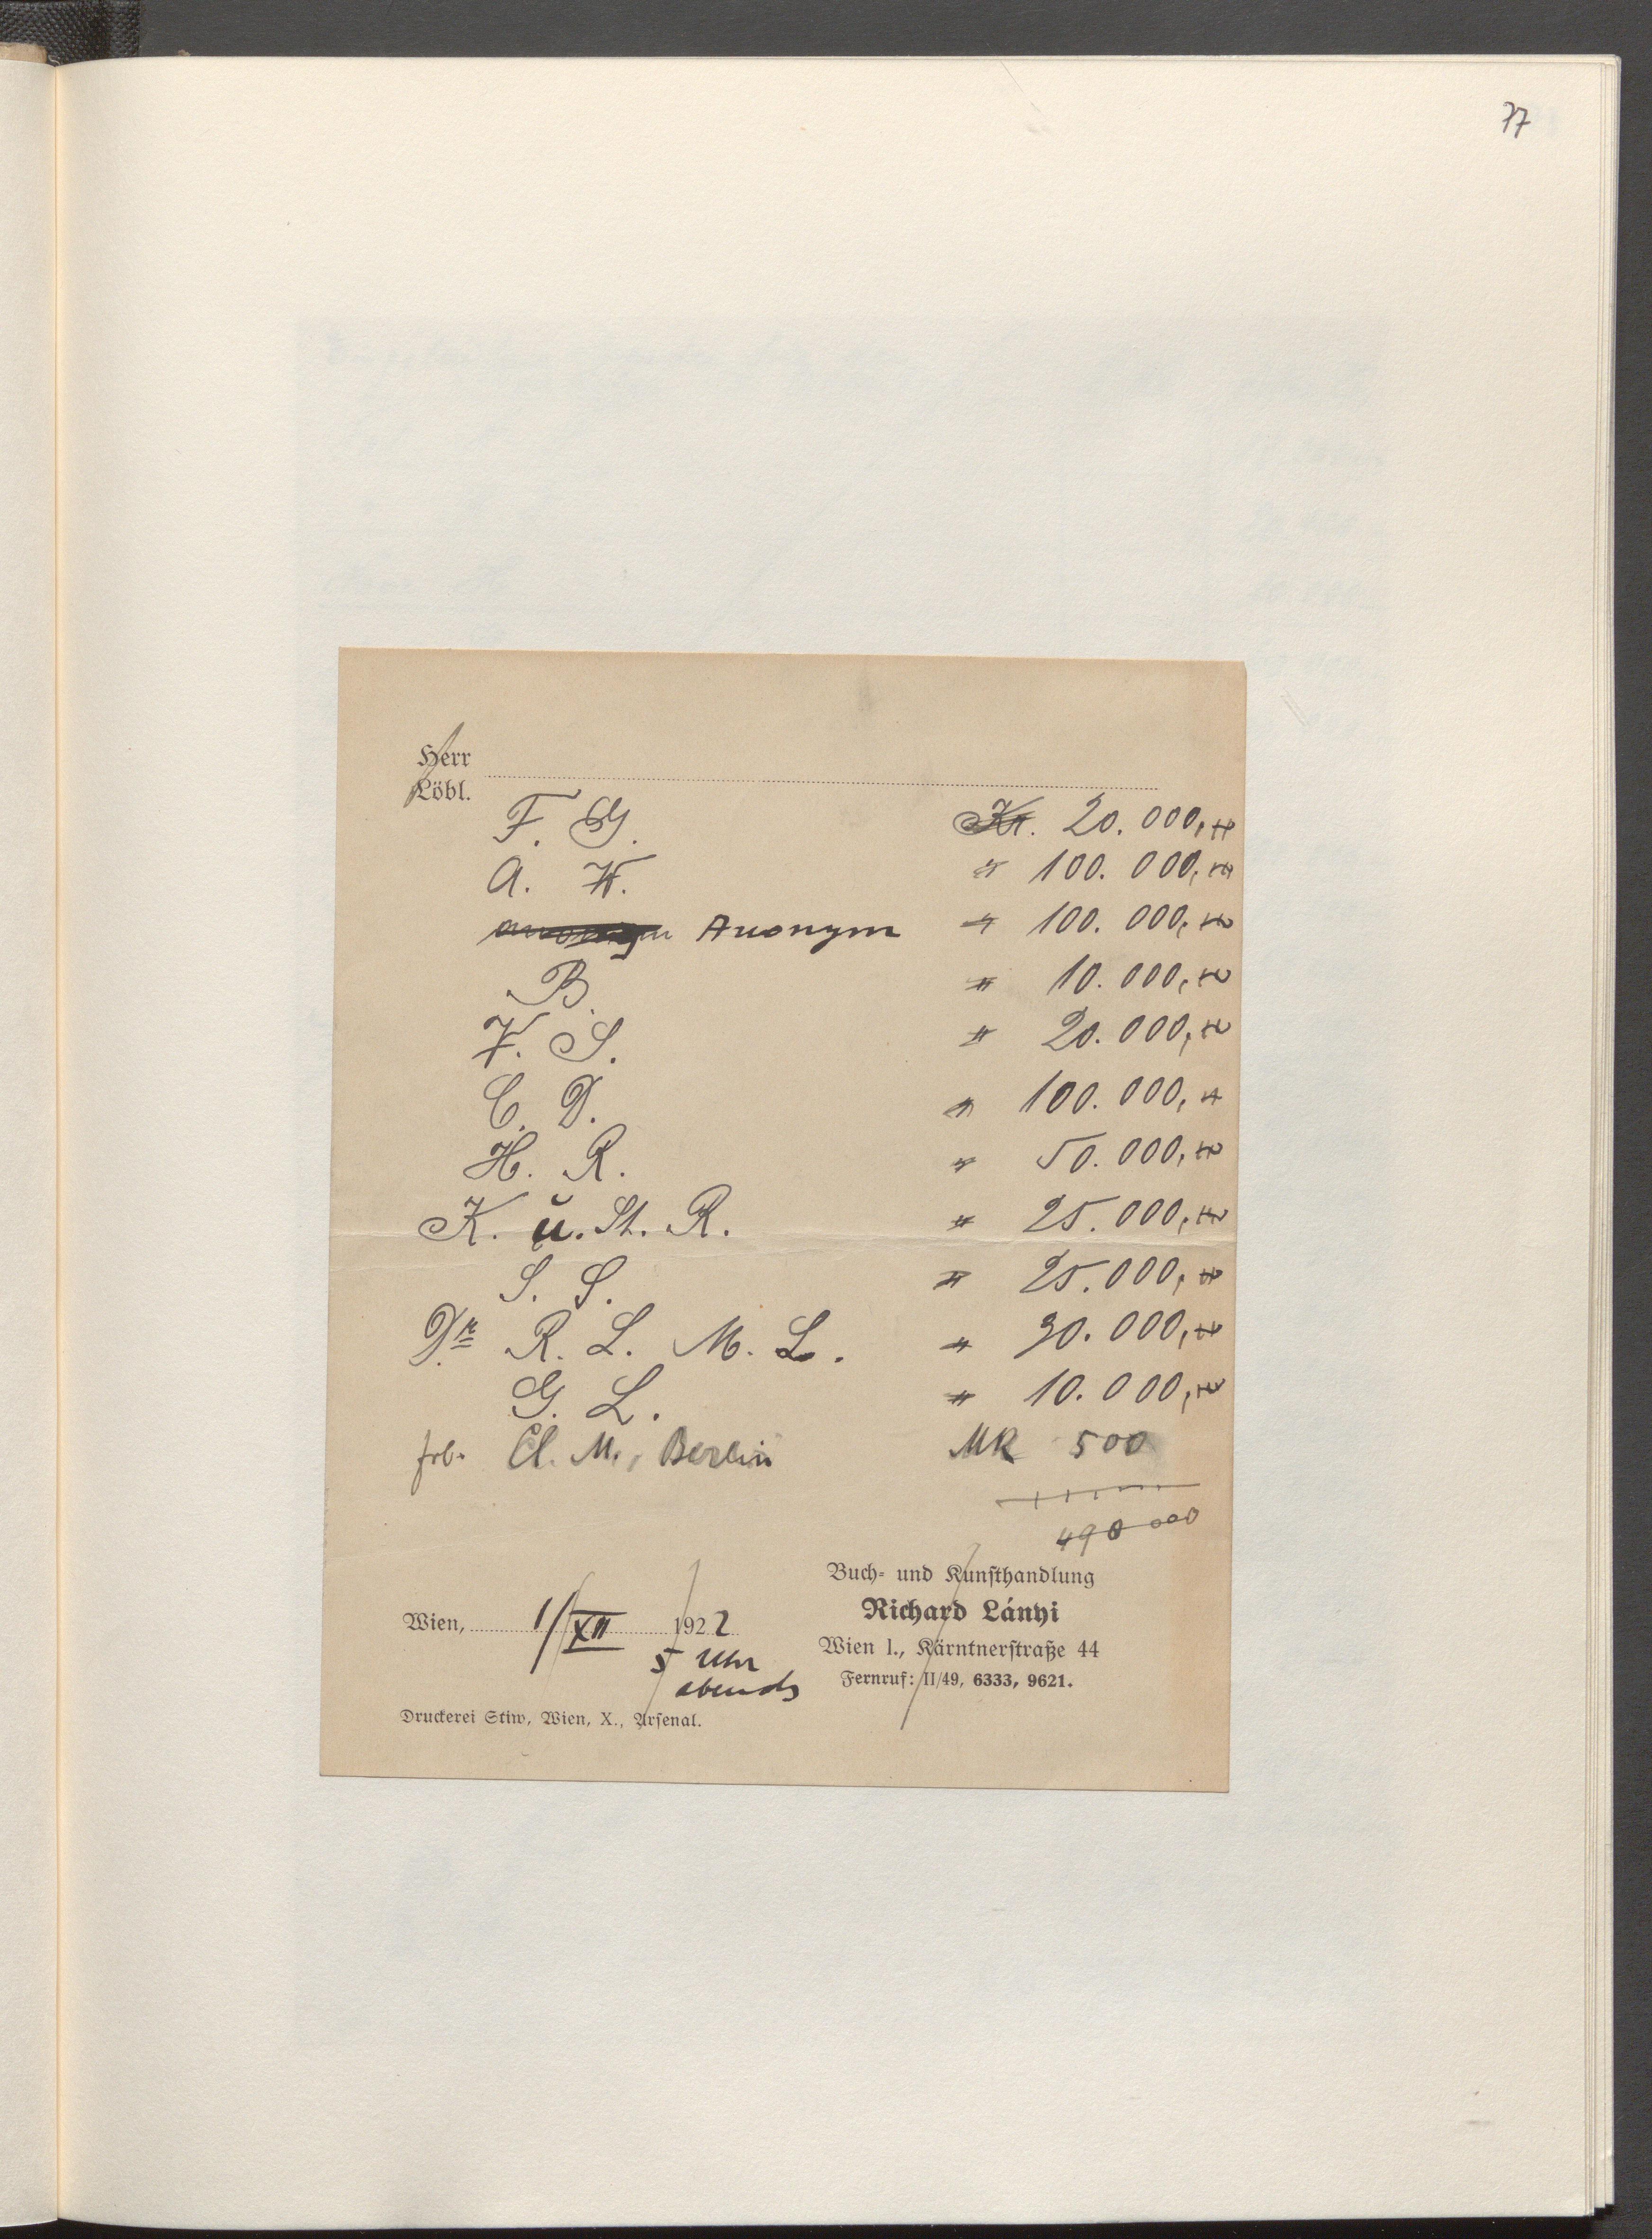 77
Herr
Löbl.
F. G. Kr. 20.000,"
A. W. " 100.000,"
anonym Anonym " 100.000,"
B. " 10.000,"
V. S. " 20.000,"
C. D. " 100.000,"
H. R. " 50.000,"
K. u. St. R. " 25.000,"
S. S. " 25.000,"
Dr R. L. M. L. " 30.000,"
G. L. " 10.000,"
Cl. M., Berlin MK 500
490 000
Buch- und Kunsthandlung
Richard Lányi
Wien, 1/XII 1922
Wien I., Kärntnerstraße 44
5 Uhr
abends
Fernruf: II/49, 6333, 9621.
Druckerei Stiw, Wien, X., Arsenal.